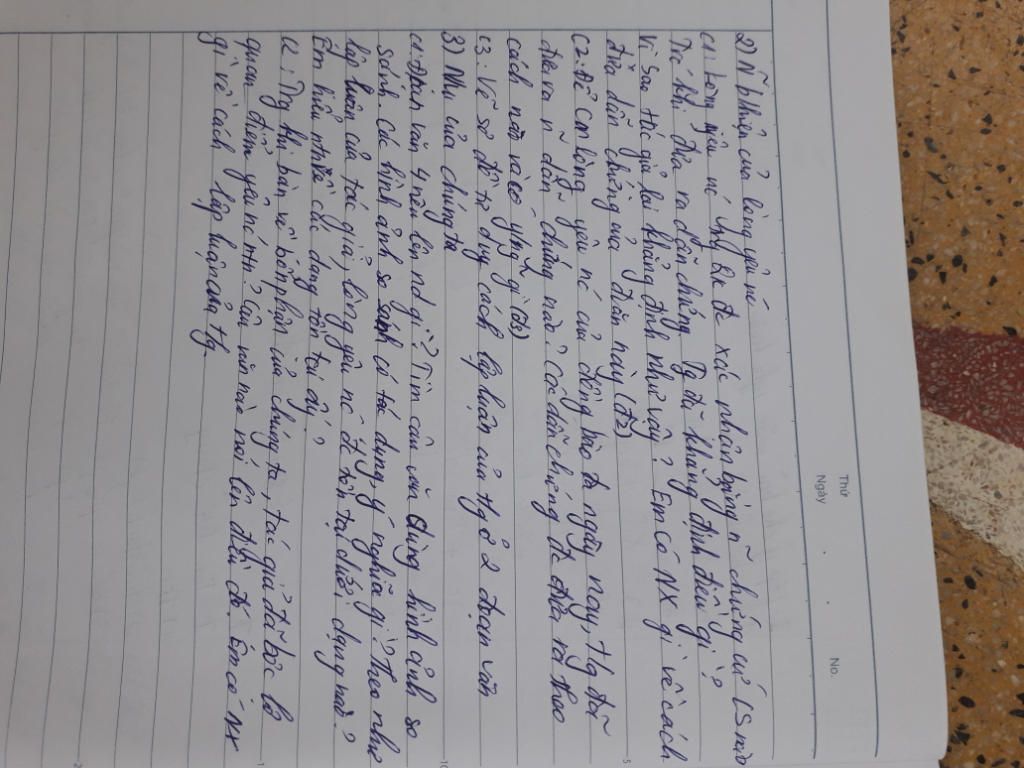 Thứ
Ngày
No.
2) Ñ biểu hiện của lòng yêu nc
c1: Lòng yêu nc ... đc xác nhận bằng ñ chứng cứ LS nào
Trc khi đưa ra dẫn chứng, tg đã khẳng định điều gì?
Vì sao tác giả lại khẳng định như vậy? Em có NX gì về cách
đưa dẫn chứng của đoạn này (Đ2)
C2: Để cm lòng yêu nc của đồng bào ta ngày nay, tg đã
đưa ra ñ dẫn chứng nào? Các dẫn chứng đc đưa ra theo
cách nào và có ý nghĩa gì (Đ3)
c3: Vẽ sơ đồ tư duy cách lập luận của tg ở 2 đoạn văn
3) Nvụ của chúng ta
c1: Đoạn văn 4 nêu lên nd gì? Tìm câu văn dùng hình ảnh so
sánh. Các hình ảnh so sánh có tác dụng, ý nghĩa gì? Theo như
lập luận của tác giả, lòng yêu nc đc tồn tại dưới dạng nào?
Em hiểu ntn về các dạng tồn tại ấy?
c2: Trg khi bàn về bổn phận của chúng ta, tác giả đã bộc lộ
quan điểm yêu nc ntn? Câu văn nào nói lên điều đó. Em có NX
gì về cách lập luận của tg.
5
10